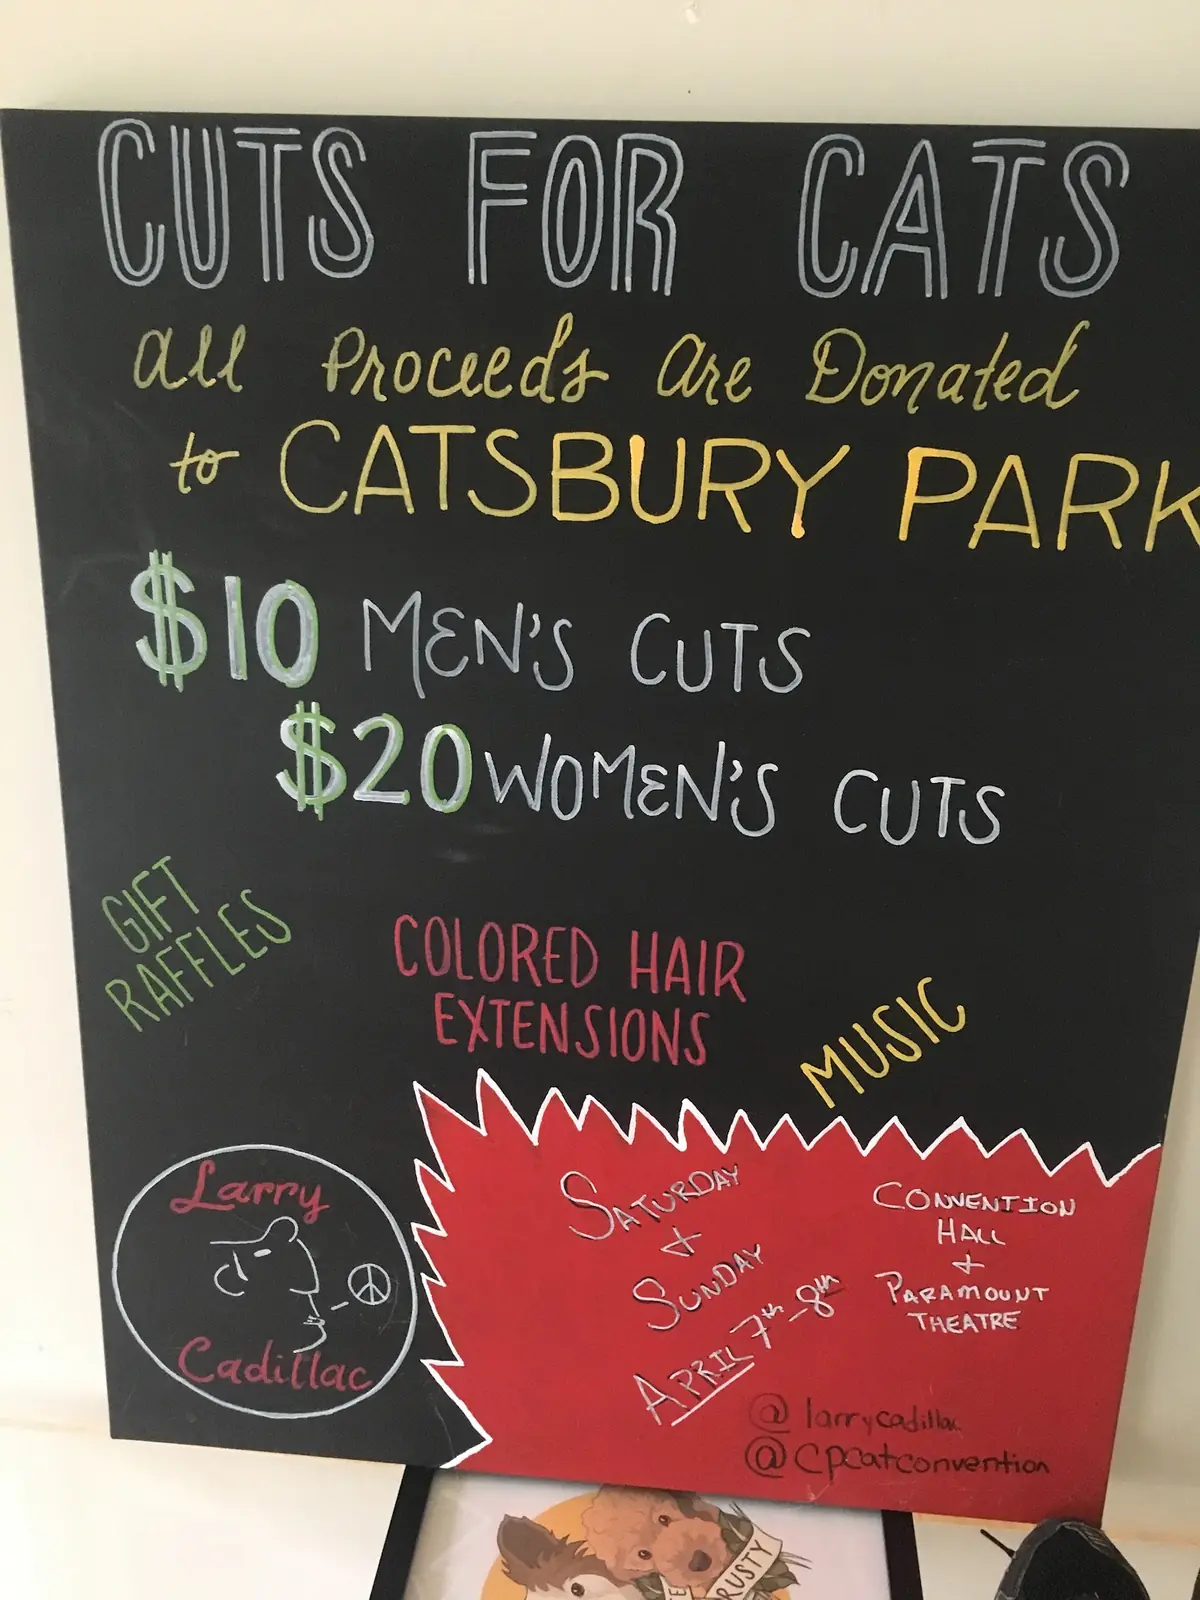 CUTS FOR CATS
all Proceeds are Donated
to CATSBURY PARK
$10 MEN'S CUTS
$20 WOMEN'S CUTS
GIFT
RAFFLES
COLORED HAIR
EXTENSIONS
MUSIC
Larry
Cadillac
SATURDAY
+
SUNDAY
APRIL 7th-8th
CONVENTION
HALL
+
PARAMOUNT
THEATRE
@larrycadillac
@cpcatconvention
RUSTY